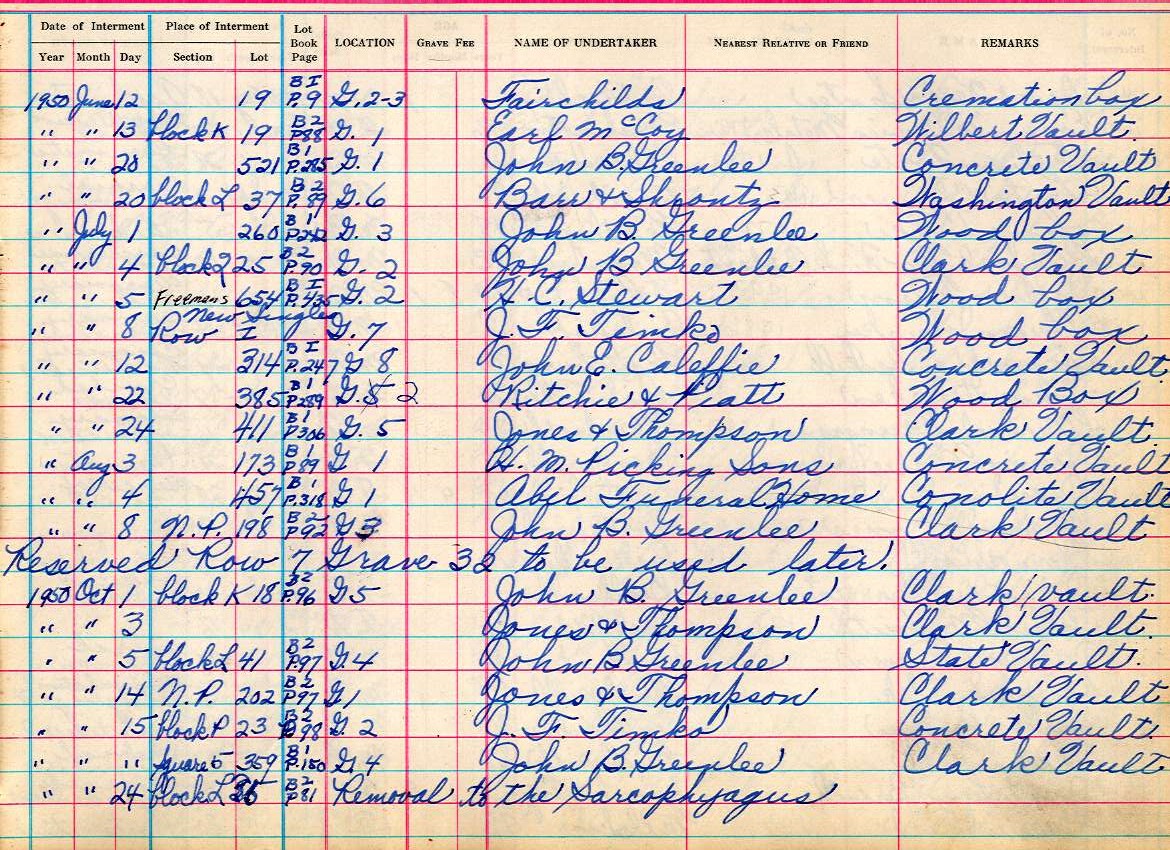 Date of Interment Place of Interment Lot Book Page LOCATION GRAVE FEE NAME OF UNDERTAKER NEAREST RELATIVE OR FRIEND REMARKS
Year Month Day Section Lot
1950 June 12 19 B I P. 9 G. 2-3 Fairchilds Cremation box
" " 13 block K 19 B 2 P 88 G. 1 Earl McCoy Wilbert Vault.
" " 20 521 B 1 P. 285 G. 1 John B. Greenlee Concrete Vault
" " 20 block L 37 B 2 P. 89 G. 6 Barr & Shrontz Washington Vault
" July 1 260 B 1 P 212 G. 3 John B. Greenlee Wood box
" " 4 block L 25 B 2 P. 90 G. 2 John B Greenlee Clark Vault
" " 5 Freemans 654 B I P. 435 G. 2 H. C. Stewart Wood box
New Singles
" " 8 Row I G. 7 J. F. Timko Wood box
" " 12 314 B I P. 247 G 8 John E. Caleffie Concrete Vault
" " 22 385 B 1 P 289 G. 2 Ritchie & Piatt Wood Box
" " 24 411 B 1 P 306 G. 5 Jones & Thompson Clark Vault.
" Aug 3 173 B 1 P 89 G 1 H. M. Picking Sons Concrete Vault
" " 4 457 B 1 P. 318 G 1 Abel Funeral Home Conolite Vault
" " 8 N. P. 198 B 2 P 92 G 3 John B. Greenlee Clark Vault
Reserved Row 7 Grave 32 to be used later.
1950 Oct 1 block K 18 B 2 P. 96 G 5 John B. Greenlee Clark vault.
" " 3 Jones & Thompson Clark Vault.
" " 5 block L 41 B 2 P. 97 G. 4 John B Greenlee State Vault.
" " 14 N. P. 202 B 2 P 97 G 1 Jones & Thompson Clark Vault.
" " 15 block P 23 B 2 P 98 G. 2 J. F. Timko Concrete Vault.
" " " Square 5 359 B 1 P. 150 G 4 John B. Greenlee Clark Vault
" " 24 block L B 2 P 81 Removal to the Sarcophyagus